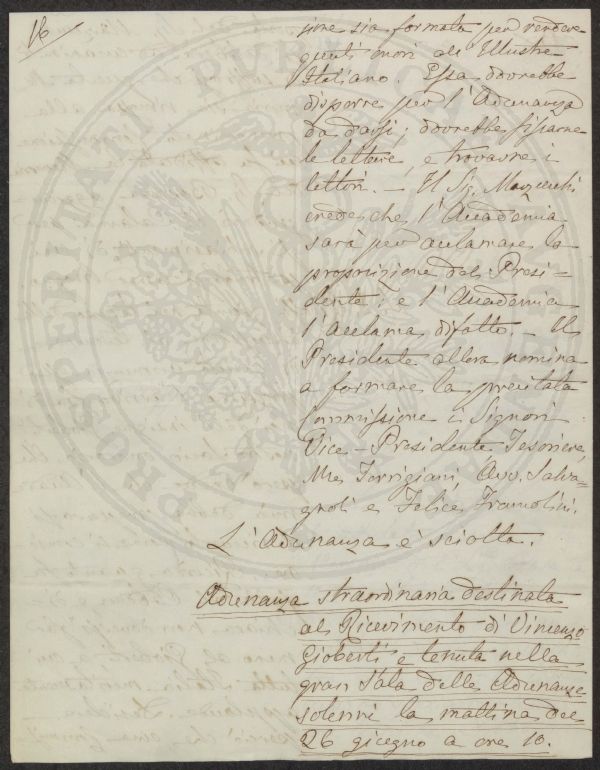 16
sione sia formata per rendere
questi onori all'Illustre
Italiano. Essa dovrebbe
disporre per l'Adunanza
da darsi; dovrebbe fissarne
le letture, e trovarne i
lettori. — Il Sig. Mazzucchi
crede che l'Accademia
sarà per acclamare la
proposizione del Presi-
dente; e l'Accademia
l'acclama difatto. — Il
Presidente allora nomina
a formare la precitata
Commissione i Signori
Vice-Presidente, Tesoriere,
Mse Torrigiani, Avv. Salva-
gnoli e Felice Francolini.
L'Adunanza è sciolta.
Adunanza straordinaria destinata
al Ricevimento di Vincenzo
Gioberti e tenuta nella
gran Sala delle Adunanze
solenni la mattina del
26 giugno a ore 10.
PROSPERITATI PUBLICAE